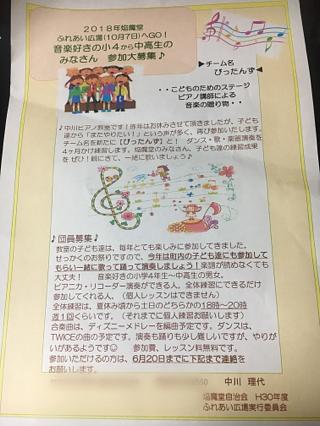 2018年焔魔堂
ふれあい広場(10月7日)へGO!
音楽好きの小4から中高生の
みなさん 参加大募集♪
▶チーム名
ぴったんず◀
・・こどものためのステージ
ピアノ講師による
音楽の贈り物・・
♪中川ピアノ教室です!昨年はお休みさせて頂きましたが、子ども
達から「またやりたい!」という声が多く、再び参加いたします。
チーム名を新たに【ぴったんず】と! ダンス・歌・楽器演奏を
4ヶ月かけ練習します。焔魔堂のみなさん、子ども達の練習成果
を ぜひ!観にきて、一緒に歌いましょう♪
♪団員募集♪
教室の子ども達は、毎年とても楽しみに参加してきました。
せっかくのお祭りですので、今年は町内の子ども達にも参加して
もらい一緒に歌って踊って演奏しましょう!楽譜が読めなくても
大丈夫! 音楽好きの小学4年生~中高生の男女。
ピアニカ・リコーダー演奏ができる人。全体練習にできるだけ
参加してくれる人。(個人レッスンはできません)
全体練習は、夏休み頃から土日のどちらかの18時~20時
週1回くらいです。(それまでに個人練習お願いします)
合奏曲は、ディズニーメドレーを編曲予定です。ダンスは、
TWICEの曲の予定です。演奏も踊りも少し難しいですが、やりが
いがあるみようです☺ 参加費、レッスン料無料です。
参加いただけるの方は、6月20日までに下記まで連絡を
お願いします。
中川 理代
焔魔堂自治会 H30年度
ふれあい広場実行委員会